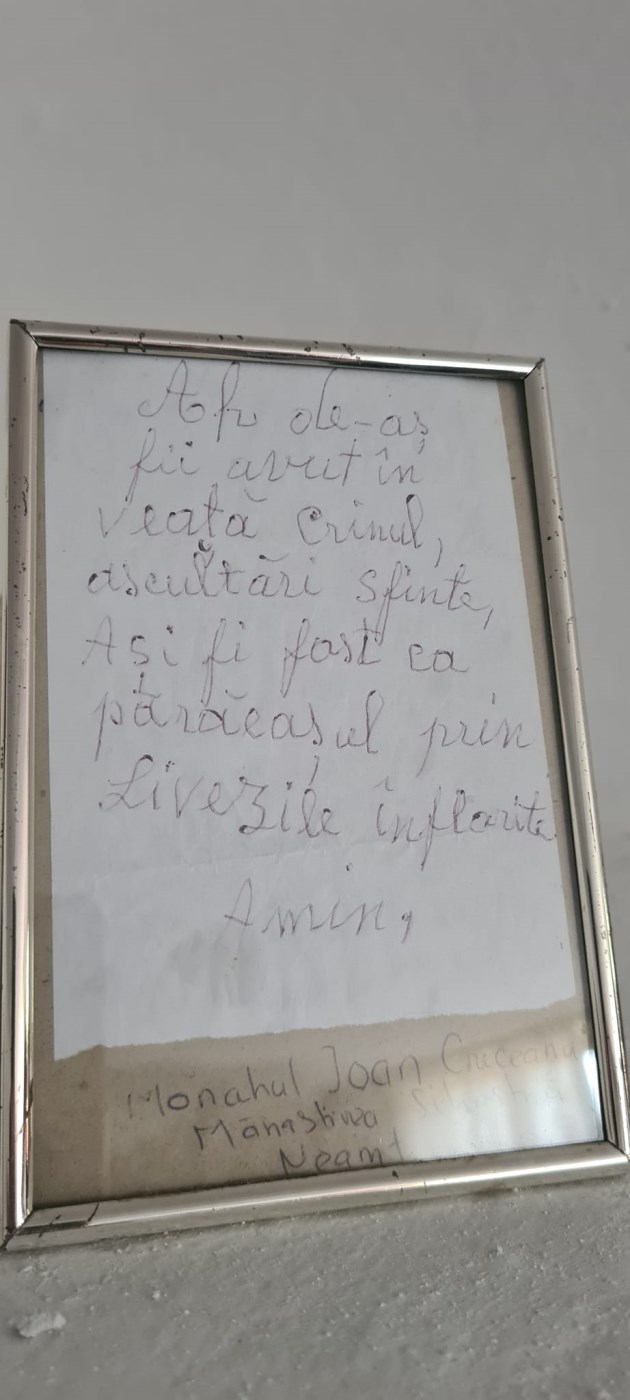 Ah de-aș
fii avut în
veață crinul,
ascultări sfinte,
Ași fi fost ca
părăeașul prin
Livezile înflorite
Amin,
Monahul Ioan Cruceanu
Mănăstirea
Neamț